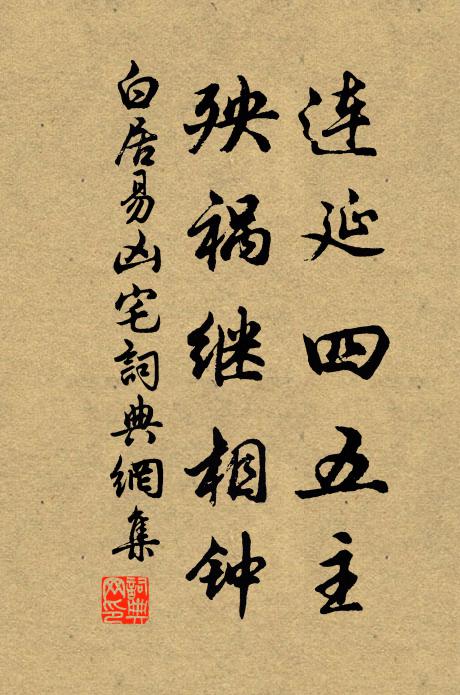 连延四五主
殃祸继相钟
白居易凶宅詞典網集
詞典网印